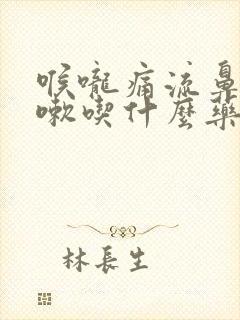 喉嚨痛流鼻
嗽喫什麼藥
林長生